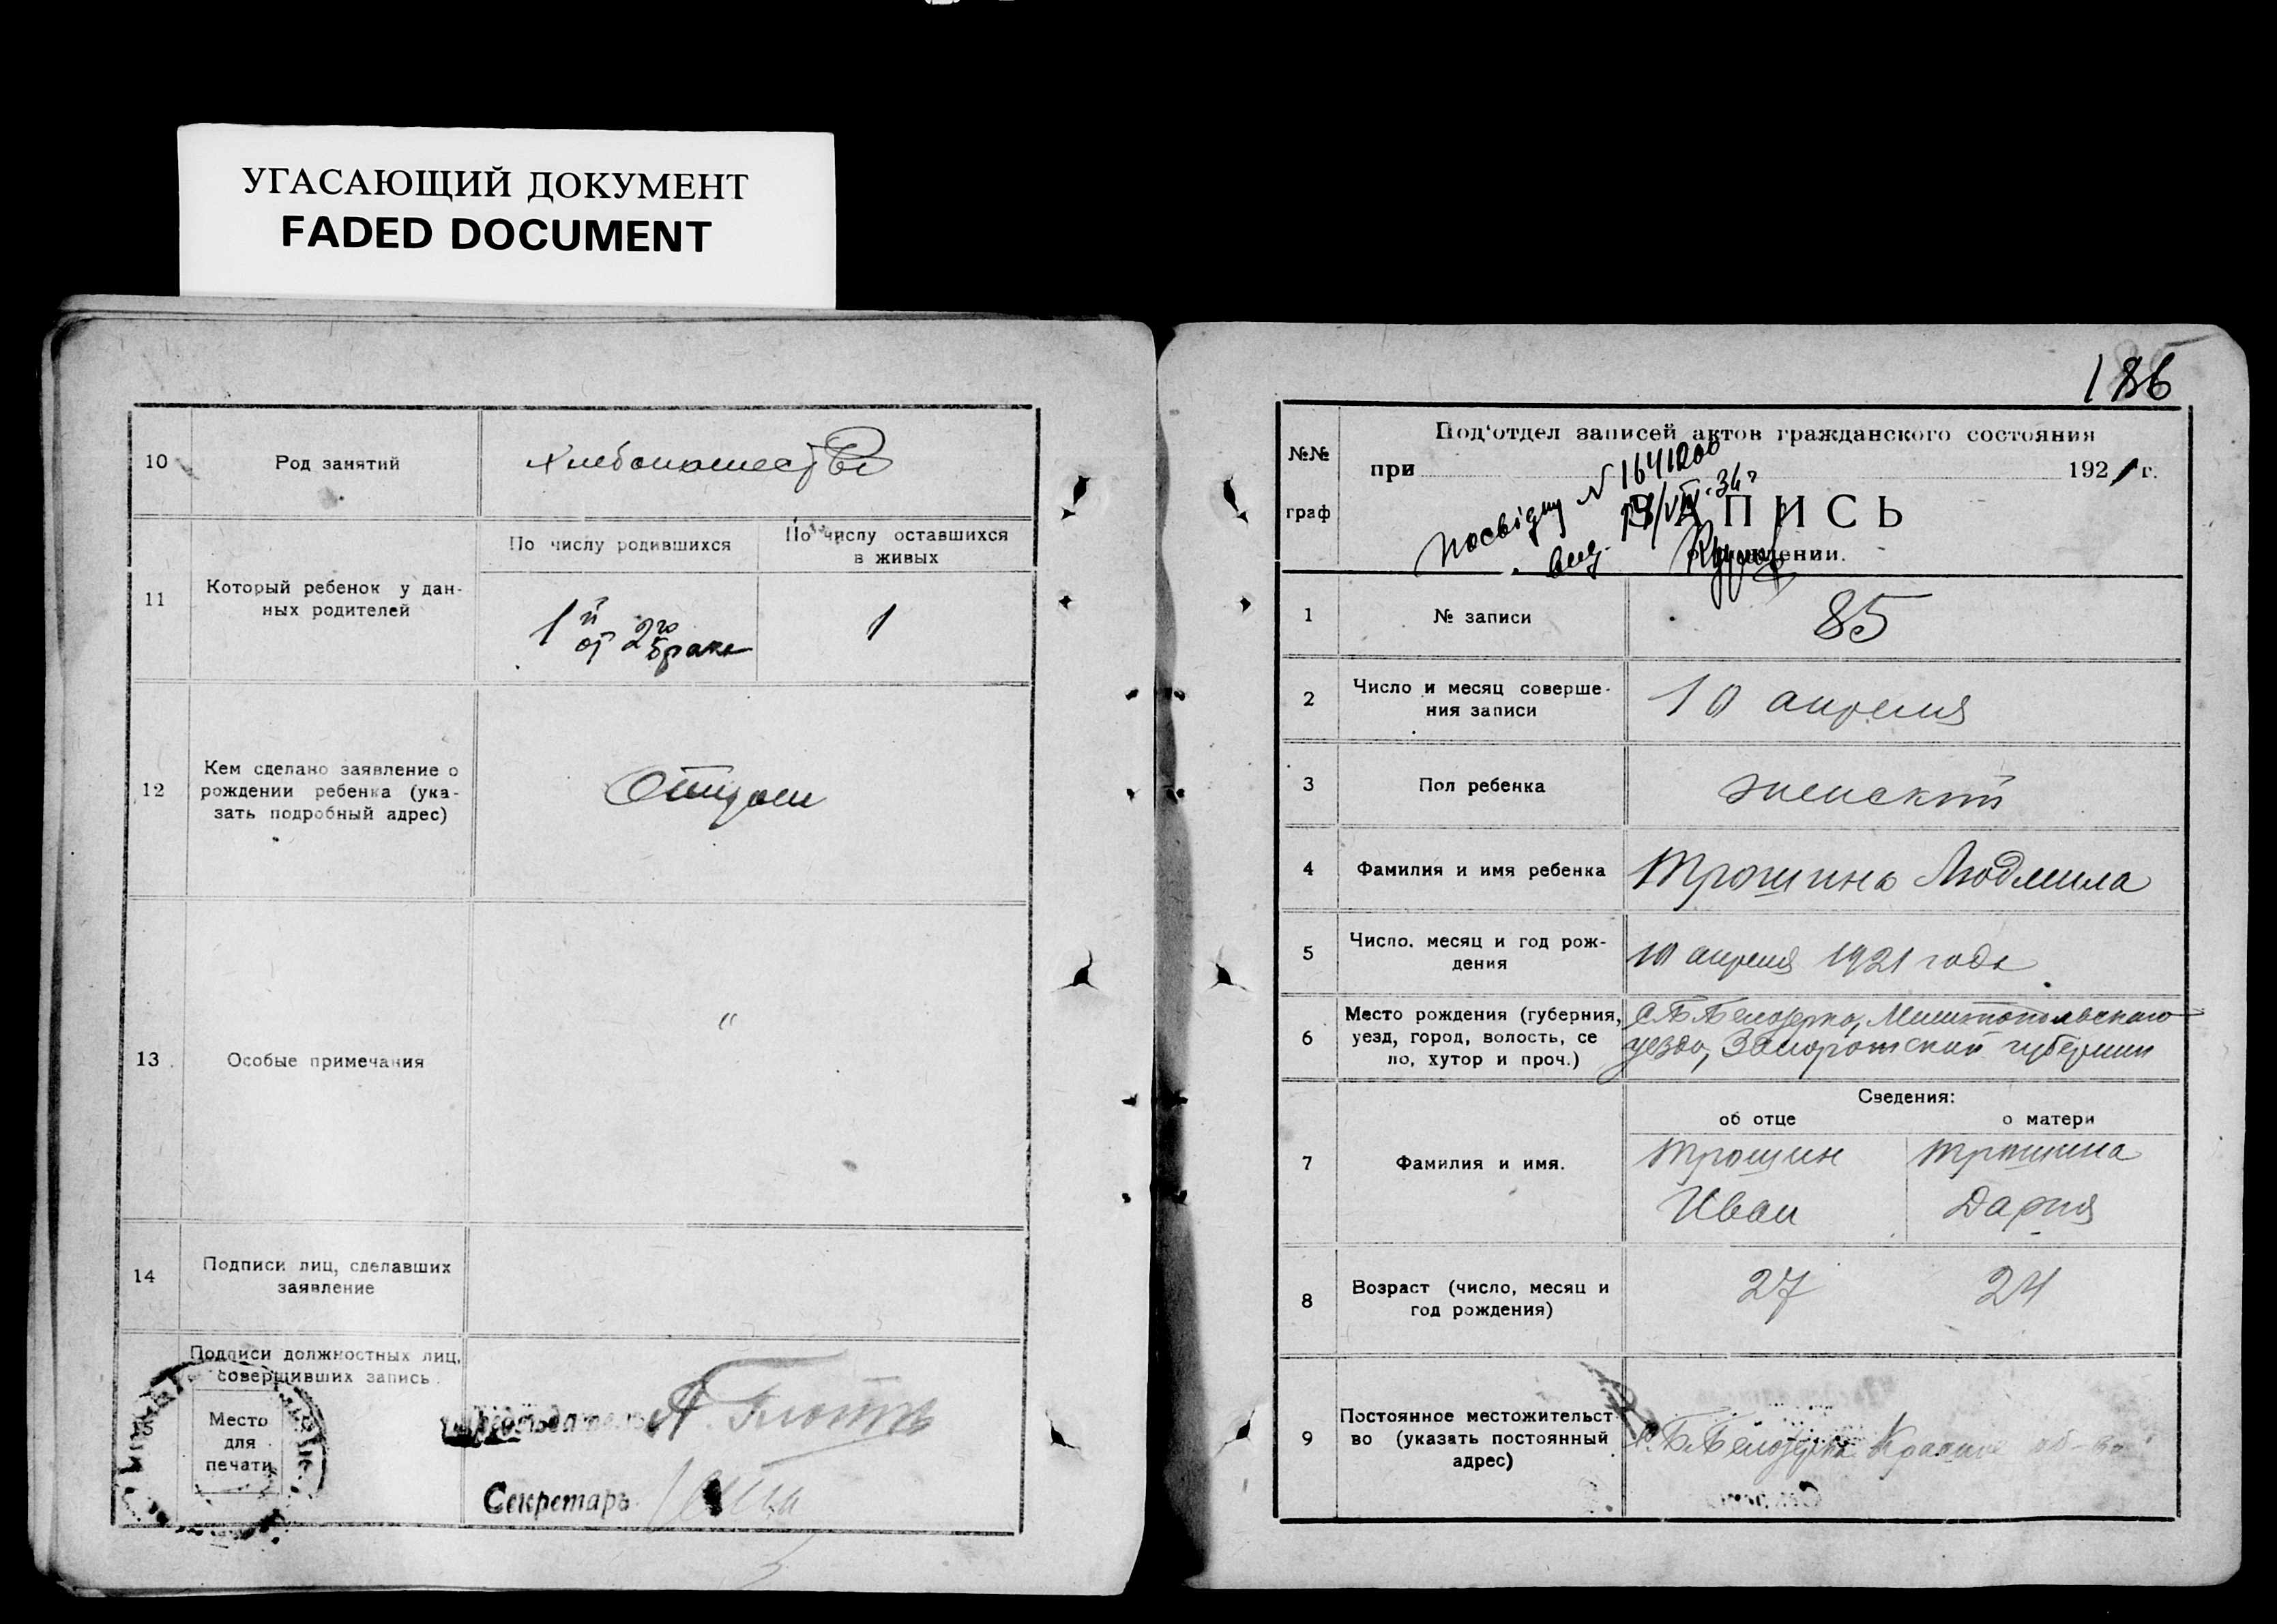 УГАСАЮЩИЙ ДОКУМЕНТ
FADED DOCUMENT
10
Род занятий
Хлебопашество
11
Который ребенок у дан-
ных родителей
По числу родившихся
По числу оставшихся
в живых
1й
от 2го
брака
1
12
Кем сделано заявление о
рождении ребенка (ука-
зать подробный адрес)
Отцом
13
Особые примечания
"
14
Подписи лиц, сделавших
заявление
15
Подписи должностных лиц,
совершивших запись.
Место
для
печати
Председатель А.
Секретарь
186
№№
граф
Под'отдел записей актов гражданского состояния
при 1921 г.
ЗАПИСЬ
о рождении.
посвідку N 1641200
вид.
1
№ записи
85
2
Число и месяц соверше-
ния записи
10 апреля
3
Пол ребенка
женский
4
Фамилия и имя ребенка
Трошина Людмила
5
Число, месяц и год рож-
дения
10 апреля 1921 года
6
Место рождения (губерния,
уезд, город, волость, се
ло, хутор и проч.)
С. Б. Белозерка, Мелитопольского
уезда, Запорожской губернии
Сведения:
об отце
о матери
7
Фамилия и имя.
Трошин
Иван
Трошина
Дария
8
Возраст (число, месяц и
год рождения)
27
24
9
Постоянное местожительст
во (указать постоянный
адрес)
С. Б. Белозерка